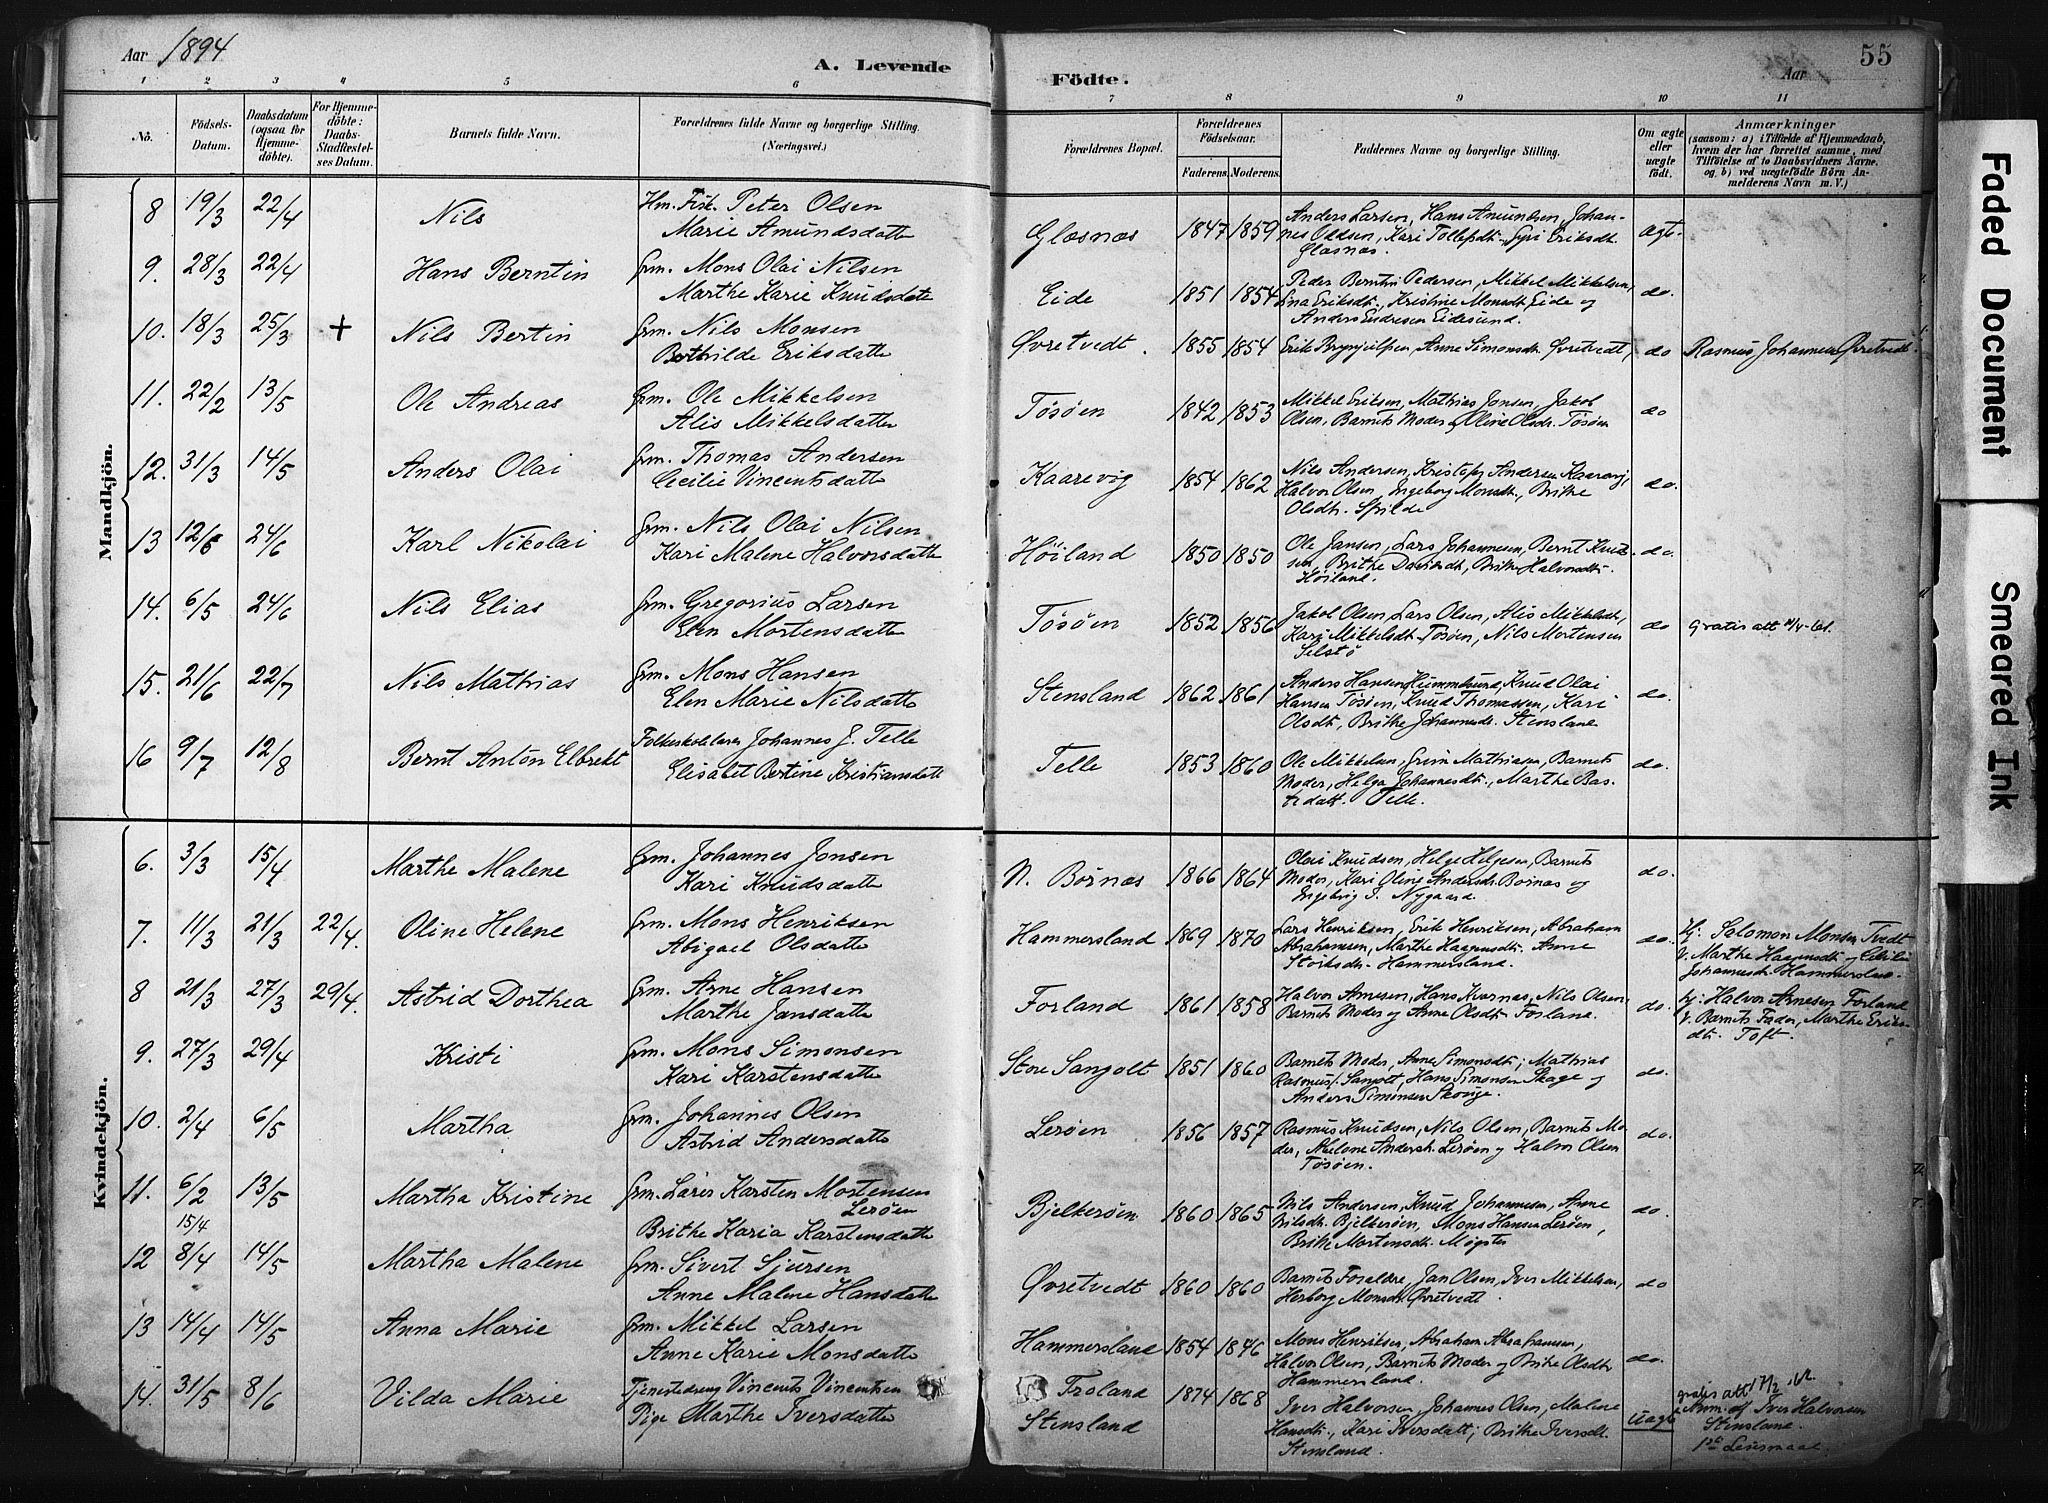 Aar 1894
A. Levende
Födte.
Aar
55
1 2 3 4 5 6 7 8 9 10 11
Nö.
Födsels-
Datum.
Daabsdatum
(ogsaa for
Hjemme-
döbte).
For Hjemme-
döbte:
Daabs-
Stadfæstel-
ses Datum.
Barnets fulde Navn.
Forældrenes fulde Navne og borgerlige Stilling.
(Næringsvei.)
Forældrenes Bopæl.
Forældrenes
Födselsaar.
Faderens. Moderens.
Faddernes Navne og borgerlige Stilling.
Om ægte
eller
uægte
födt.
Anmærkninger
(saasom: a) i Tilfælde af Hjemmedaab,
hvem der har forrettet samme, med
Tilföielse af to Daabsvidners Navne,
og b) ved uægtefödte Börn An-
melderens Navn m. V.)
Mandkjön.
8 19/3 22/4 Nils Hm. Fisk. Peter Olsen
Marie Amundsdatter
Glæsnæs 1847 1859 Anders Larsen, Hans Amundsen, Johan-
nes Oddsen, Kari Tollefsdt., Syri Eriksdt.
Glæsnæs. Ægte
9. 28/3 22/4 Hans Berntin Grm. Mons Olai Nilsen
Marthe Karie Knudsdatte
Eide 1851 1854 Peder Berntin Pedersen, Mikkel Mikkelsen,
Lina Eriksdt., Kristine Monsdt. Eide og
Anders Endresen Eidesund. do.
10. 18/3 25/3 + Nils Bertin Grm. Nils Monsen
Bothilde Eriksdatte
Øvretvedt. 1855 1854 Erik Brynjulfsen, Anne Simonsdt. Øvretvedt, do Rasmus Johannesen Øvretvedt.
11. 22/2 13/5 Ole Andreas Grm. Ole Mikkelsen
Alis Mikkelsdatter
Tösöen 1842 1853 Mikkel Eriksen, Mathias Jansen, Jakob
Olsen, Barnets Moder, Oline Olsdt. Tösöen do
12. 31/3 14/5 Anders Olai Grm. Thomas Andersen
Cecilie Vincentsdatte
Kaarevig 1854 1862 Nils Andersen, Kristofer Andersen Kaarevig,
Halvor Olsen, Ingeborg Monsdt., Brithe
Olsdt. Spilde do.
13 12/6 24/6 Karl Nikolai Grm. Nils Olai Nilsen
Kari Malene Halvorsdatte
Höiland 1850 1850 Ole Jansen, Lars Johannesen, Bernt Knud-
sen, Brithe Davidsdt., Brithe Halvorsdt.
Höiland. do.
14. 6/5 24/6 Nils Elias Grm. Gregorius Larsen
Elen Mortensdatte
Tösöen 1852 1856 Jakob Olsen, Lars Olsen, Alis Mikkelsdt.,
Kari Mikkelsdt. Tösöen, Nils Mortensen
Selstö do Gratis att
15. 21/6 22/7 Nils Mathias Grm. Mons Hansen
Elen Marie Nilsdatte
Stensland 1862 1861 Anders Hansen Hummelsund, Knud Olai
Hansen Tösöen, Knud Thomassen, Kari
Olsdt., Brithe Johannesdt. Stensland do.
16 9/7 12/8 Bernt Anton Elbrekt Folkeskolelærer Johannes J. Telle
Elisabet Bertine Kristiansdatt
Telle 1853 1860 Ole Mikkelsen, Grim Mathiasen, Barnets
Moder, Helga Johannesdt., Marthe Bas-
tedatt. Telle. do.
Kvindekjön.
6. 3/3 15/4 Marthe Malene Grm. Johannes Jonsen
Kari Knudsdatte
N. Börnæs 1866 1864 Olai Knudsen, Helge Helgesen, Barnets
Moder, Kari Oline Andersdt. Börnæs og
Nygaard. do.
7. 11/3 21/3 22/4. Oline Helene Grm. Mons Henriksen
Abigael Olsdatte
Hammersland 1869 1870 Lars Henriksen, Erik Henriksen, Abraham
Abrahamsen, Marthe Haagensdt. Anne
Störksdt. Hammersland. do. Hj. Salomon Monsen Tvedt
V. Marthe Haagensdt. og Cecilie
Johannesdt. Hammersland.
8 21/3 27/3 29/4. Astrid Dorthea Grm. Arne Hansen
Marthe Jansdatte
Forland 1861 1858 Halvor Arnesen, Hans Kvernæs, Nils Olsen,
Barnets Moder og Anne Olsdt. Forland. do. Hj: Halvor Arnesen Forland
V. Barnets Fader, Marthe Eriks-
dt. Toft.
9. 27/3 29/4 Kristi Grm. Mons Simonsen
Kari Karstensdatte
Store Sangolt 1851 1860 Barnets Moder, Anne Simonsdt; Mathias
Rasmus. Sangolt, Hans Simonsen Skage og
Anders Simonsen Skouge. do.
10. 2/4 6/5 Martha Grm. Johannes Olsen
Astrid Andersdatte
Leröen 1856 1857 Rasmus Knudsen, Nils Olsen, Barnets Mo-
der, Malene Andersdt. Leröen og Halvor Olsen
Tösöen. do.
11. 6/2 13/5 Martha Kristine Grm. Lærer Karsten Mortensen
Leröen
15/4 Brithe Karia Karstensdatte
Bjelkeröen 1860 1865 Nils Andersen, Knud Johannesen, Anne
Nilsdt. Bjelkeröen, Mons Hansen Leröen,
Brithe Mortensdt. Møgster do.
12 8/4 14/5 Martha Malene Grm. Sivert Sjursen
Anne Malene Hansdatte
Øvretvedt 1860 1860 Barnets Forældre, Jan Olsen, Iver Mikkelsen,
Herborg Monsdt. Øvretvedt. do
13 14/4 14/5 Anna Marie Grm. Mikkel Larsen
Anne Karie Monsdatte
Hammersland 1854 1846 Mons Henriksen, Abraham Abrahamsen,
Halvor Olsen, Barnets Moder og Brithe Olsdt.
Hammersland. do.
14. 31/5 8/6 Vilda Marie Tjenestedreng Vincents Vincentsen
Pige Marthe Iversdatte
Troland
Stensland 1874 1868 Iver Halvorsen, Johannes Olsen, Malene
Hansdt., Kari Iversdatt; Brithe Iversdt.
Stensland. uægte gratis att 17/2
Anm. af Iver Halvorsen
Stensland.
1ste Leiermaal.
Faded Document
Smeared Ink